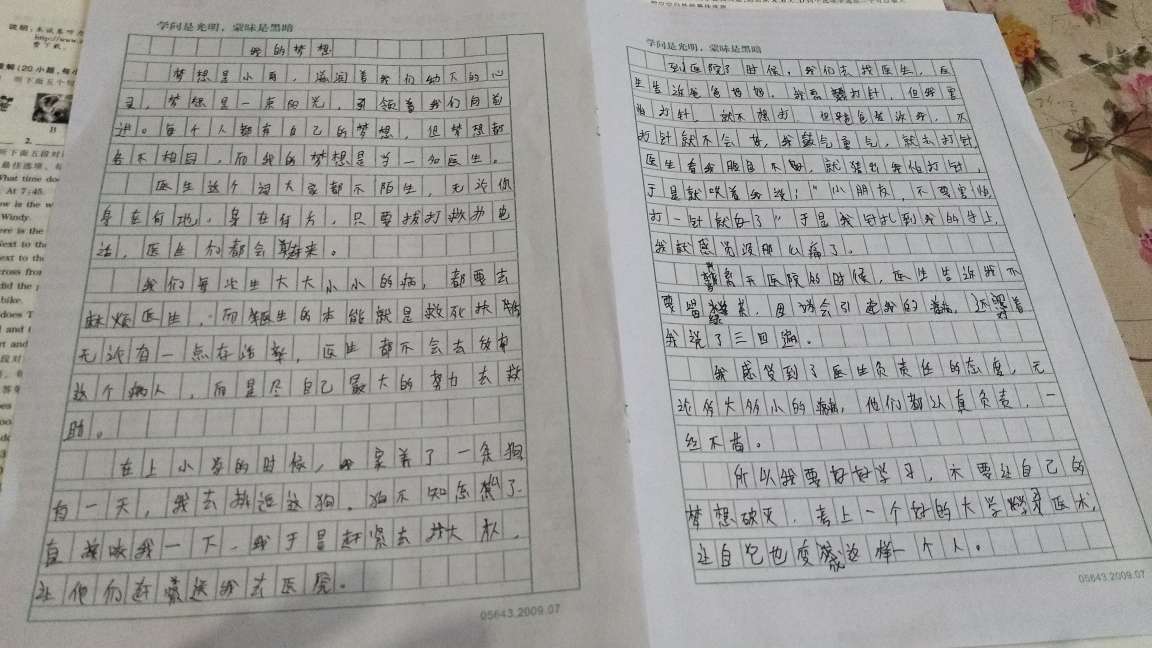 说明:本试卷听力
http://www.
费下载。
(20小题,每小
听下面五个句
B
2.
听下面五段对
最佳选项。每
What time doe
At 7:45.
ow is the w
Windy.
ere is the
Next to th
ext to the
cross from
did the p
bike.
does T
and t
rt and
学问是光明,蒙昧是黑暗
我的梦想
梦想是小雨,滋润着我们幼小的心
灵,梦想是一束阳光,引领着我们向前
进。每个人都有自己的梦想,但梦想都
各不相同,而我的梦想是当一名医生。
医生这个词大家都不陌生,无论你
身在何地,身在何方,只要拨打救护电
话,医生们都会赶来。
我们每次生大大小小的病,都要去
麻烦医生,而医生的本能就是救死扶伤
无论有一点存活率,医生都不会去放弃
这个病人,而是尽自己最大的努力去救
助。
在上小学的时候,我家养了一条狗
有一天,我去挑逗这狗,狗不知怎么了
直接咬我一下,我于是赶紧去找大人,
让他们赶紧送我去医院。
05643.2009.07
学问是光明,蒙昧是黑暗
到医院了时候,我们去找医生,医
生告诉爸爸妈妈,我需要打针,但我害
怕打针,就不想打,但爸爸告诉我,不
打针就不会好,我鼓气勇气,就去打针
医生看我脸色不好,就猜到我怕打针,
于是就哄着我说:“小朋友,不要害怕
打一针就好了”于是我针扎到我的手上,
我就感觉没那么痛了。
离开医院的时候,医生告诉我不
要留
我说了三四遍。
我感受到了医生负责任的态度,无
论多大多小的病,他们都认真负责,一
丝不苟。
所以我要好好学习,不要让自己的
梦想破灭,考上一个好的大学学习医术,
让自己也变成这样一个人。
05643.2009.07